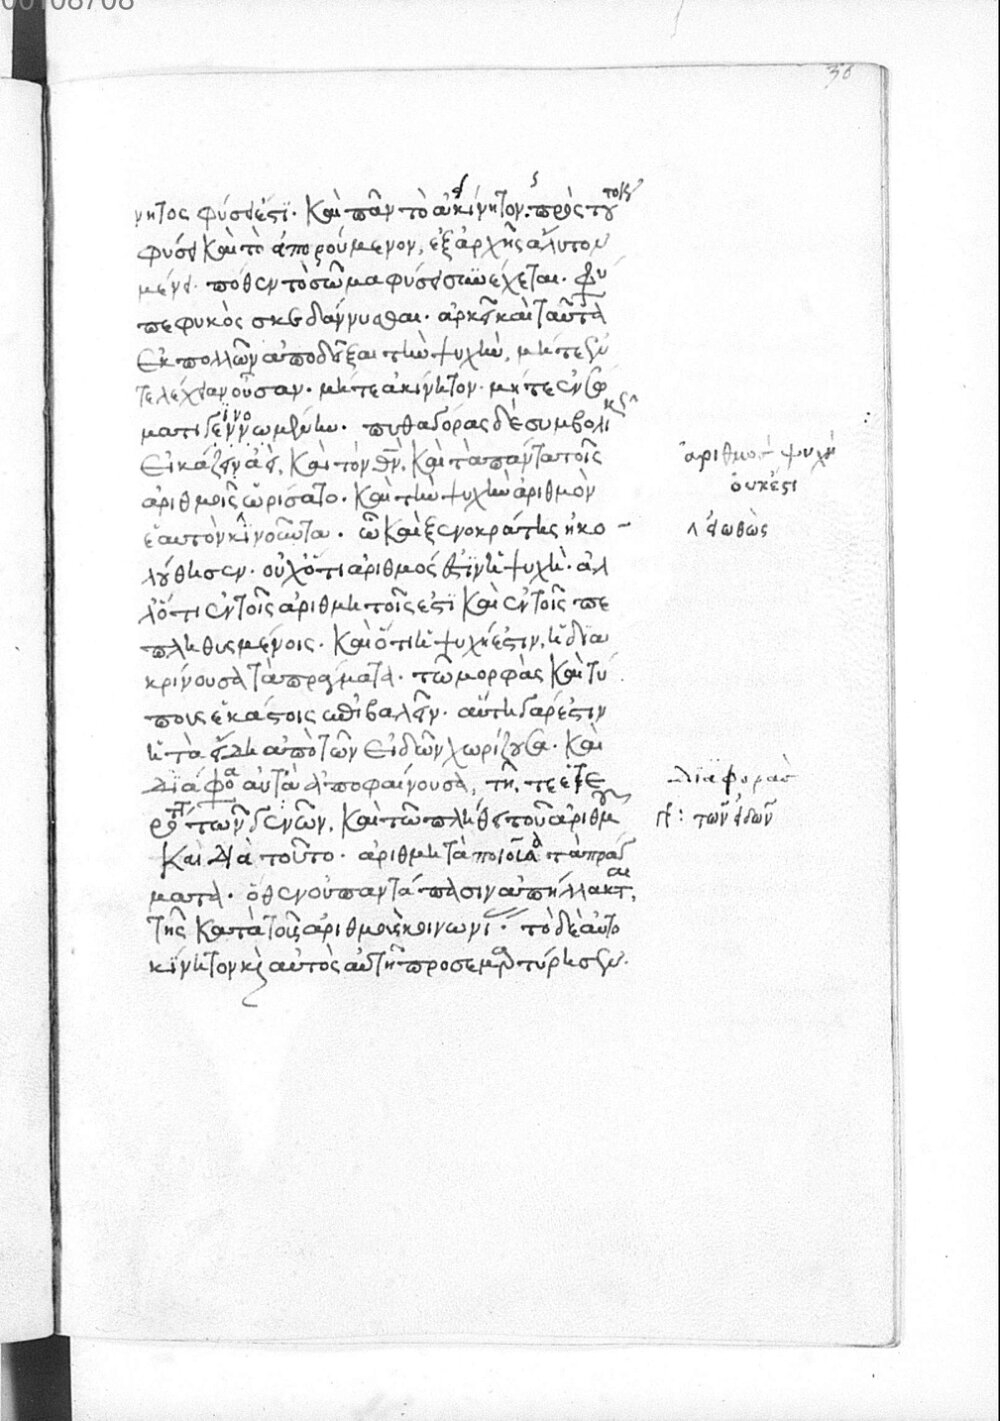 00108708
36
νητος φύσει ἐστί. καὶ πᾶν τὸ ἀκίνητον. πρὸς τού τοις
φύσει καὶ τὸ ἀπορούμενον, ἐξ ἀρχῆς ἀλυτου
μένει. πόθεν τὸ σῶμα φύσει συνέχεται.
πεφυκὸς σκεδάννυσθαι. ἀρκεῖ καὶ ταῦτα
ἐκ πολλῶν ἀποδεῖξαι τὴν ψυχὴν, μήτε ἐν
τελέχειαν οὖσαν. μήτε ἀκίνητον. μήτε ἐν σώ
ματι γεννωμένην. πυθαγόρας δὲ συμβολι κῶς
εἰκάζειν ἀεὶ, καὶ τὸν θν, καὶ τὰ πάντα τοῖς
ἀριθμοῖς ὡρίσατο. καὶ τὴν ψυχὴν ἀριθμὸν
ἑαυτὸν κινοῦντα. ᾧ καὶ ξενοκράτης ἠκο
λούθησεν. οὐχ ὅτι ἀριθμός ἐστιν ἡ ψυχὴ. ἀλ
λ' ὅτι ἐν τοῖς ἀριθμητοῖς ἐστὶ καὶ ἐν τοῖς πε
πληθυσμένοις. καὶ ὅτι ἡ ψυχή ἐστιν, ἡ δια
κρίνουσα τὰ πράγματα. τῷ μορφὰς καὶ τύ
πους ἑκάστοις ἐπιβαλεῖν. αὕτη γάρ ἐστιν
ἡ τὰ εἴδη ἀπὸ τῶν εἰδῶν χωρίζουσα. καὶ
διάφορα αὐτὰ ἀποφαίνουσα, τῇ τε ἑτε
ρότητι τῶν γενῶν, καὶ τῷ πλήθει τοῦ ἀριθμοῦ
καὶ διὰ τοῦτο. ἀριθμητὰ ποιοῦσα τὰ πράγ
ματα. ὅθεν οὐ πάντα πᾶσιν ἀπήλλακται
τῆς κατὰ τοὺς ἀριθμοὺς κοινωνίας. τὸ δὲ αὐτο
κίνητον καὶ αὐτὸς αὐτῇ προσεμαρτύρησεν.
ἀριθμὸς ψυχὴ
οὐκ ἔστι
διαφορὰς
τῶν εἰδῶν